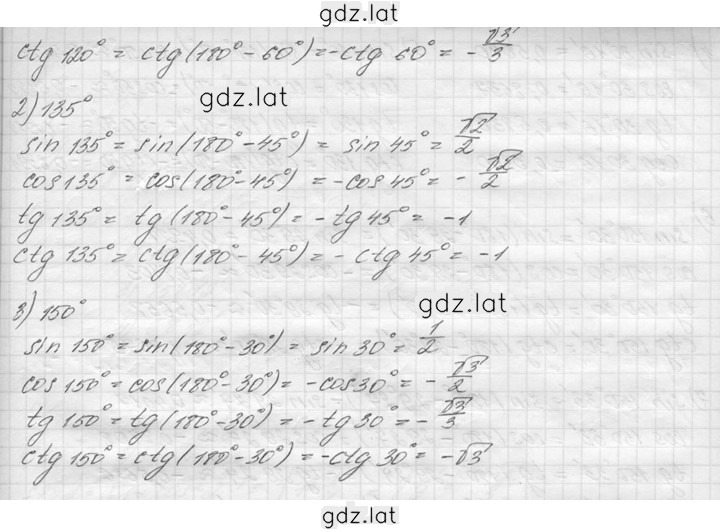 gdz.lat
ctg 120° = ctg(180° - 60°) = -ctg 60° = - √3/3
gdz.lat
2) 135°
sin 135° = sin(180° - 45°) = sin 45° = √2/2
cos 135° = cos(180° - 45°) = -cos 45° = - √2/2
tg 135° = tg(180° - 45°) = - tg 45° = -1
ctg 135° = ctg(180° - 45°) = - ctg 45° = -1
3) 150°
gdz.lat
sin 150° = sin(180° - 30°) = sin 30° = 1/2
cos 150° = cos(180° - 30°) = -cos 30° = - √3/2
tg 150° = tg(180° - 30°) = - tg 30° = - √3/3
ctg 150° = ctg(180° - 30°) = -ctg 30° = -√3
gdz.lat